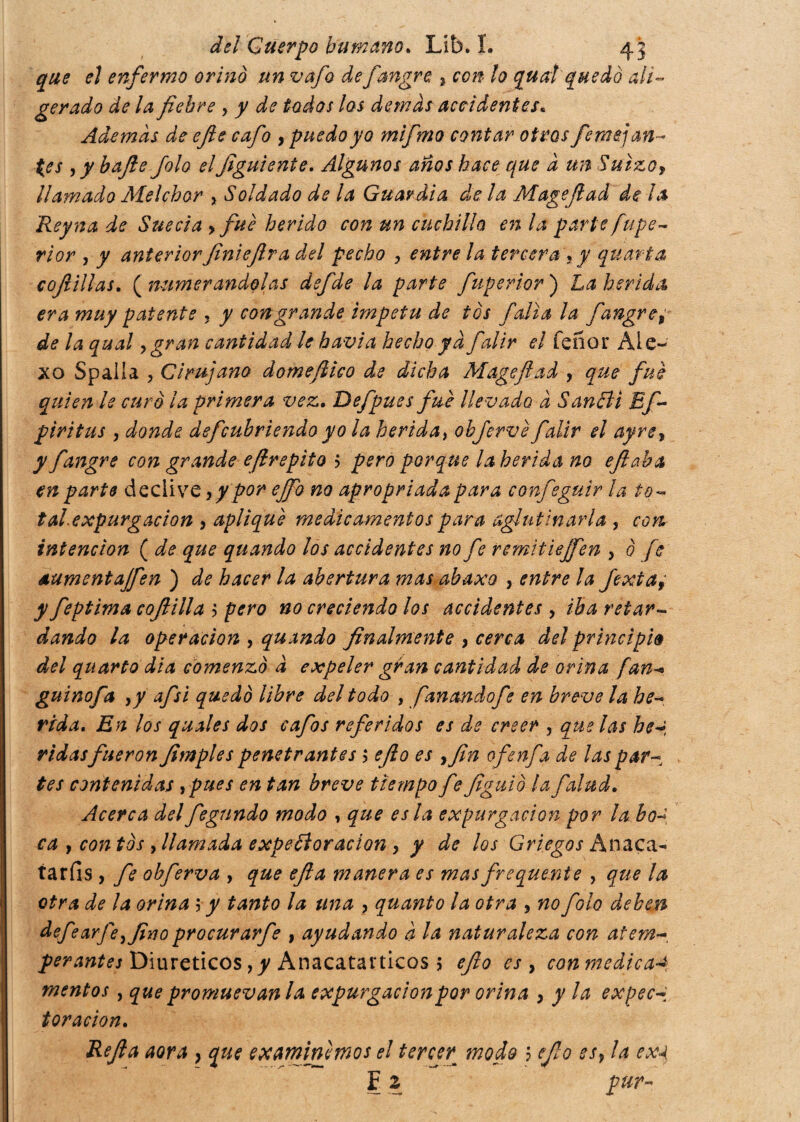 del Cuerpo humano. Lib. I. 43
que el enfermo orinò un vaſo de ſangre, con lo qual quedò ali-
gerado de la fiebre, y de todos los demàs accidentes.
Ademàs de eſte caſo, puedo yo miſmo contar otros ſemejan-
tes, y baſte ſolo el ſiguiente. Algunos años hace que à un Suizo,
llamado Melchor, Soldado de la Guardia de la Mageſtad de la
Reyna de Suecia, fuè herido con un cuchillo en la parte ſupe-
rior, y anterior ſinieſtra del pecho, entre la tercera, y quarta
coſtillas. (numerandolas deſde la parte ſuperior) La herida
era muy patente, y con grande impetu de tòs ſalìa la ſangre,
de la qual, gran cantidad le havia hecho yà ſalir el ſeñor Ale-
xo Spalla, Cirujano domeſtico de dicha Mageſtad, que fuè
quien le curò la primera vez. Deſpues fuè llevado à Sancti Eſ-
piritus, donde deſcubriendo yo la herida, obſervè ſalir el ayre,
y ſangre con grande eſtrepito; pero porque la herida no eſtaba
en parte declive, y por eſſo no apropriada para conſeguir la to-
tal expurgacion, apliquè medicamentos para aglutinarla, con
intencion (de que quando los accidentes no ſe remitieſſen, ò ſe
aumentaſſen) de hacer la abertura mas abaxo, entre la ſexta,
y ſeptima coſtilla; pero no creciendo los accidentes, iba retar-
dando la operacion, quando finalmente, cerca del principio
del quarto dia comenzò à expeler gran cantidad de orina ſan-
guinoſa, y aſsi quedò libre del todo, ſanandoſe en breve la he-
rida. En los quales dos caſos referidos es de creer, que las he-
ridas fueron ſimples penetrantes; eſto es, ſin ofenſa de las par-
tes contenidas, pues en tan breve tiempo ſe ſiguiò la ſalud.
Acerca del ſegundo modo, que es la expurgacion por la bo-
ca, con tòs, llamada expectoracion, y de los Griegos Anaca-
tarſis, ſe obſerva, que eſta manera es mas frequente, que la
otra de la orina; y tanto la una, quanto la otra, no ſolo deben
deſearſe, ſino procurarſe, ayudando à la naturaleza con atem-
perantes Diureticos, y Anacatarticos; eſto es, con medica-
mentos, que promuevan la expurgacion por orina, y la expec-
toracion.
Reſta aora, que examinèmos el tercer modo; eſto es, la ex-
F 2 pur-